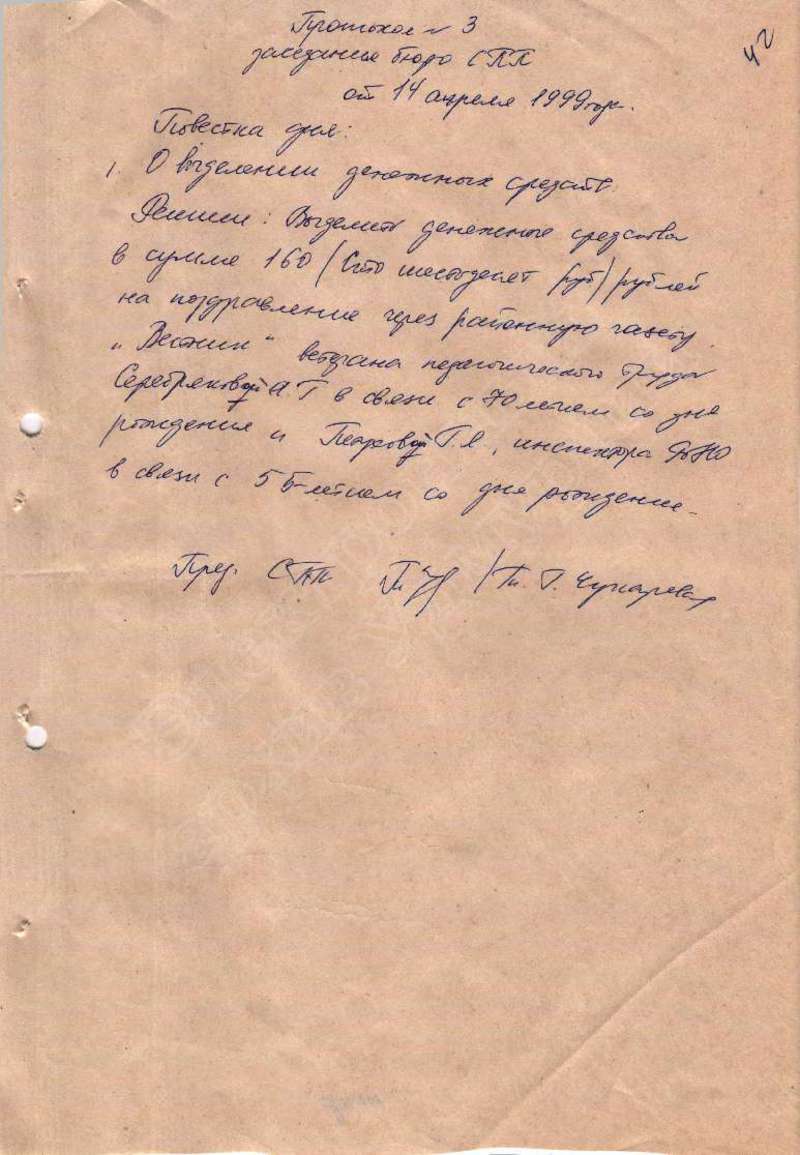 42
Протокол № 3
заседания бюро СПП
от 14 апреля 1999 года.
Повестка дня:
1. О выделении денежных средств.
Решили: Выделить денежные средства
в сумме 160 (Сто шестьдесят руб) рублей
на поздравление через районную газету
„Вестник“ ветерана педагогического труда
Серебряковой А.Г в связи с 70 летием со дня
рождения и Петровой Г.Я., инспектора РОНО
в связи с 55-летием со дня рождения.
Пред. СПП /Т. Г. Чупарева